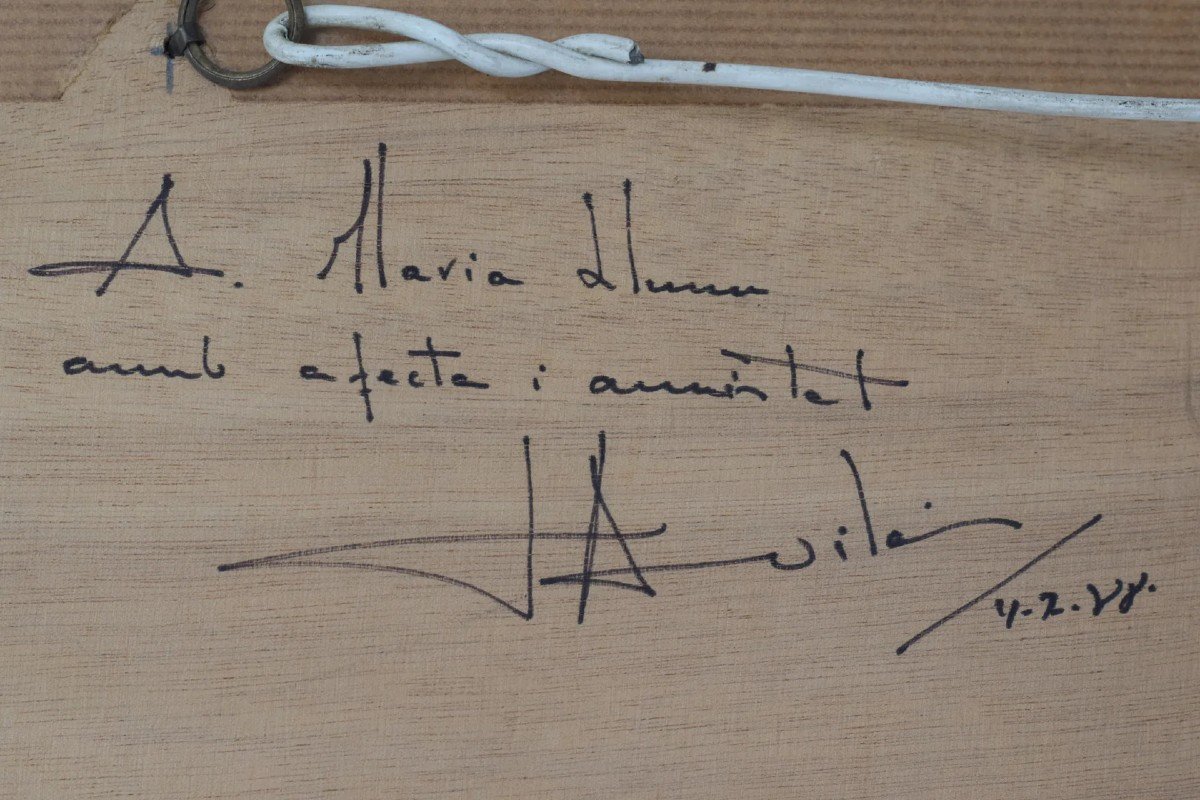 A. Maria
amb afecte i amistat
J A Vilà
4-2-88.